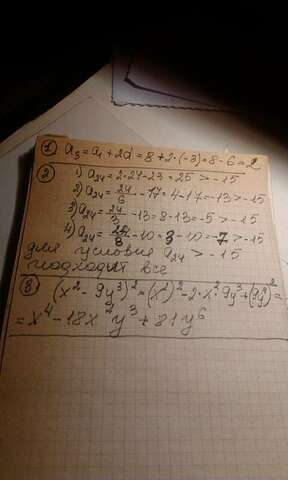 ① a₃ = a₁ + 2d = 8 + 2·(-3) = 8 - 6 = 2
② 1) a₂₄ = 2·24 - 23 = 25 > -15
2) a₂₄ = 24/6 - 17 = 4 - 17 = -13 > -15
3) a₂₄ = 24/3 - 13 = 8 - 13 = -5 > -15
4) a₂₄ = 24/8 - 10 = 3 - 10 = -7 > -15
для условия a₂₄ > -15
подходит все
③ (x² - 9y³)² = (x²)² - 2·x²·9y³ + (9y³)² =
= x⁴ - 18x²y³ + 81y⁶